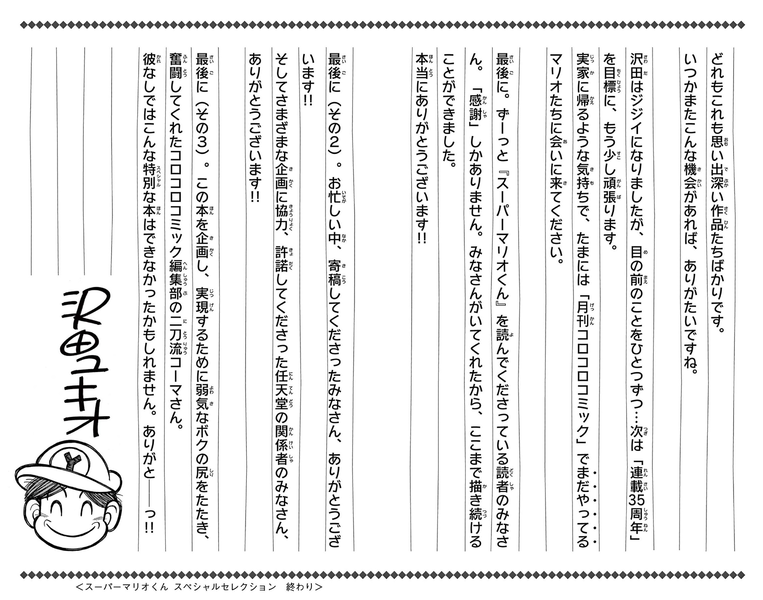 どれもこれも思い出深い作品たちばかりです。
いつかまたこんな機会があれば、ありがたいですね。
沢田はジジイになりましたが、目の前のことをひとつずつ…次は「連載35周年」
を目標に、もう少し頑張ります。
実家に帰るような気持ちで、たまには「月刊コロコロコミック」でまだやってる
マリオたちに会いに来てください。
最後に。ずーっと『スーパーマリオくん』を読んでくださっている読者のみなさ
ん。「感謝」しかありません。みなさんがいてくれたから、ここまで描き続ける
ことができました。
本当にありがとうございます!!
最後に（その2）。お忙しい中、寄稿してくださったみなさん、ありがとうござ
います!!
そしてさまざまな企画に協力、許諾してくださった任天堂の関係者のみなさん、
ありがとうございます!!
最後に（その3）。この本を企画し、実現するために弱気なボクの尻をたたき、
奮闘してくれたコロコロコミック編集部の二刀流コーマさん。
彼なしではこんな特別な本はできなかったかもしれません。ありがと――っ!!
沢田ユキオ
＜スーパーマリオくん スペシャルセレクション　終わり＞